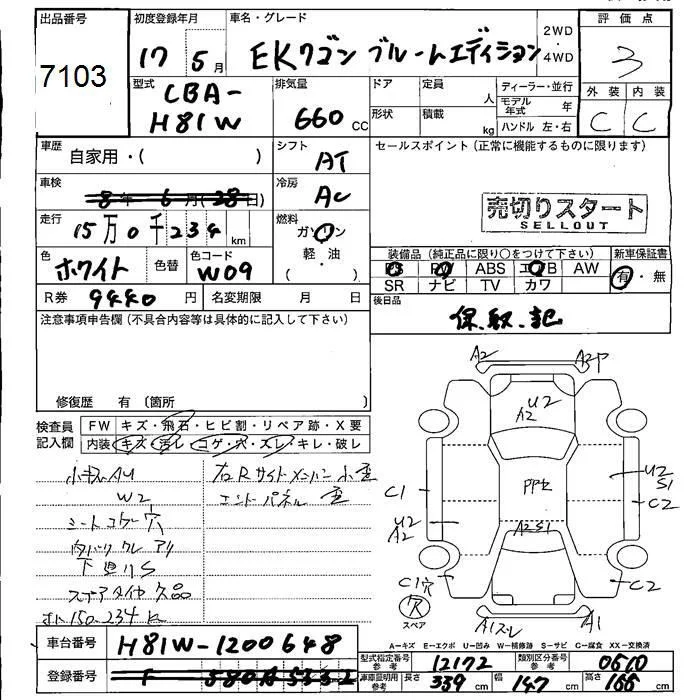 出品番号
7103
初度登録年月
17 5月
車名・グレード
EKワゴン ブルームエディション
2WD
・
4WD
評価点
3
型式
CBA-
H81W
排気量
660 CC
ドア
定員
人
形状
積載
kg
ディーラー・並行
モデル年式 年
ハンドル 左・右
外装 内装
C C
車歴
自家用・( )
シフト
AT
セールスポイント (正常に機能するものに限ります)
車検
8年 6月(28日)
冷房
AC
売切りスタート
SELLOUT
走行
15万0千234 km
燃料
ガソリン
軽・油
( )
色
ホワイト
色替
色コード
W09
装備品 (純正品に限り○をつけて下さい)
新車保証書
PS PW ABS エアB AW
SR ナビ TV カワ
有・無
R券 9440円
名変期限 月 日
後日品
保.取.記
注意事項申告欄 (不具合内容等は具体的に記入して下さい)
修復歴 有 〔箇所 〕
検査員
記入欄
FW キズ・飛石・ヒビ割・リペア跡・X要
内装 キズ・汚レ・コゲ・穴・スレ・キレ・破レ
小キズAU
W2
シートコゲ穴
内張リワレ アリ
下廻りS
スペアタイヤ欠品
メーター150.234K
右Rサイドメンバー小歪
エンドパネル 歪
A2
A2P
U2
A2
PPセ
C1
U2
A2
U2
S1
C2
A2S1
C1穴
C2
スペア
A1スレ
A1
A-キズ E-エクボ U-凹み W-補修跡 S-サビ C-腐食 XX-交換済
車台番号
H81W-1200648
登録番号
型式指定番号
参考
12172
類別区分番号
参考
0610
車庫証明用
参考
長さ
339 cm
幅
147 cm
高さ
155 cm